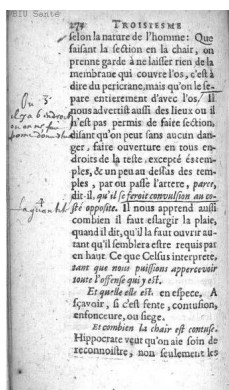 BIU Santé
274 TROISIESME
selon la nature de l'homme: Que
faisant la section en la chair, on
prenne garde à ne laisser rien de la
membrane qui couvre l'os, c'est à
dire du pericrane, mais qu'on le se-
pare entierement d'avec l'os. Il
nous advertit aussi des lieux ou il
n'est pas permis de faire section,
disant qu'on peut sans aucun dan-
ger, faire ouverture en tous en-
droits de la teste, excepté és tem-
ples, & un peu au dessus des tem-
ples, par ou passe l'artere, parce,
dit-il, qu'il se feroit convulsion au co-
sté opposite. Il nous apprend aussi
combien il faut eslargir la plaie,
quand il dit, qu'il la faut ouvrir au-
tant qu'il semblera estre requis par
en haut. Ce que Celsus interprete,
tant que nous puissions appercevoir
toute l'offense qui y est.
Et quelle elle est, en espece. A
sçavoir, si c'est fente, contusion,
enfonceure, ou siege.
Et combien la chair est contuse.
Hippocrate veut qu'on aie soin de
reconnoistre, non seulement les